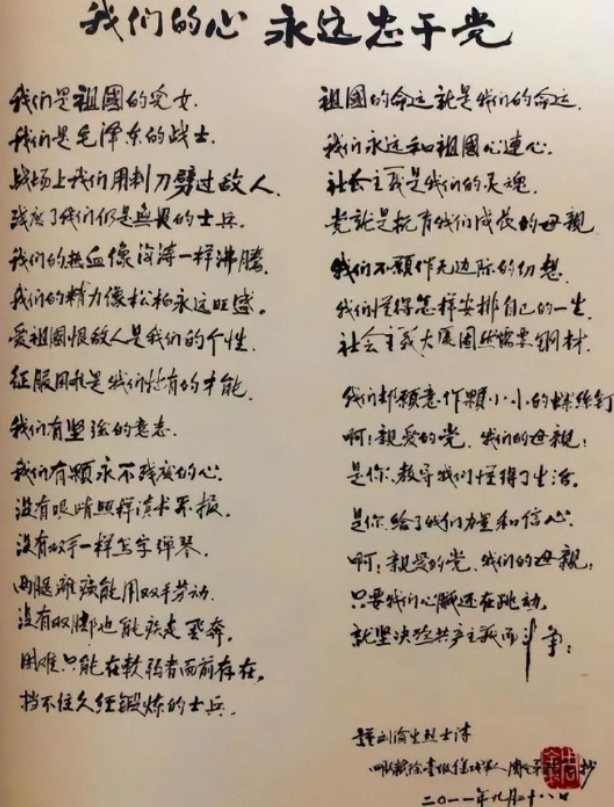 我们的心 永远忠于党
我们是祖國的兒女.
我们是毛泽东的战士.
战场上我们用刺刀劈过敌人.
残废了我们仍是無畏的士兵.
我们的热血像海涛一样沸腾.
我们的精力像松柏永远旺盛。
爱祖國恨敌人是我们的个性.
征服困难是我们特有的才能.
我们有坚强的意志.
我们有顆永不残废的心.
没有眼睛照样读书看报.
没有双手一样写字弹琴.
两腿瘫痪能用双手劳动.
没有双脚也能疾走飛奔。
困难只能在軟弱者面前存在。
挡不住久经鍛炼的士兵.
祖國的命运就是我们的命运.
我们永远和祖國心連心.
社会主義是我们的灵魂.
党就是抚育我们成长的母親
我们不願作无边际的幻想.
我们懂得怎样安排自己的一生.
社会主義大厦固然需要鋼材.
我们却願意作顆小小的螺絲釘
啊!親爱的党.我们的母親!
是你教导我们懂得了生活.
是你给了我们力量和信心.
啊!親爱的党.我们的母親!
只要我们心臟还在跳动.
就坚决为共产主義而斗争!
烈士诗
抄
二〇一一年九月二十八日